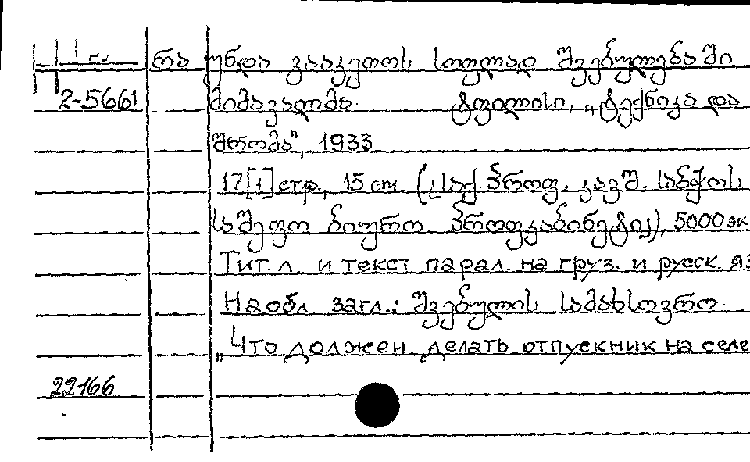 რა უნდა გააკეთოს სოფლად შვებულებაში
2-5661 მიმავალმა. ტფილისი, „ტექნიკა და
შრომა", 1933
17[1] стр, 15 см. (საქ პროფ. კავშ. საბჭოს
საშეფო ბიურო. პროფკაბინეტი), 5000 эк
Тит. л. и текст парал. на груз. и русск. яз
На обл. загл.: შვებულის სამახსოვრო.
„Что должен делать отпускник на селе
22166